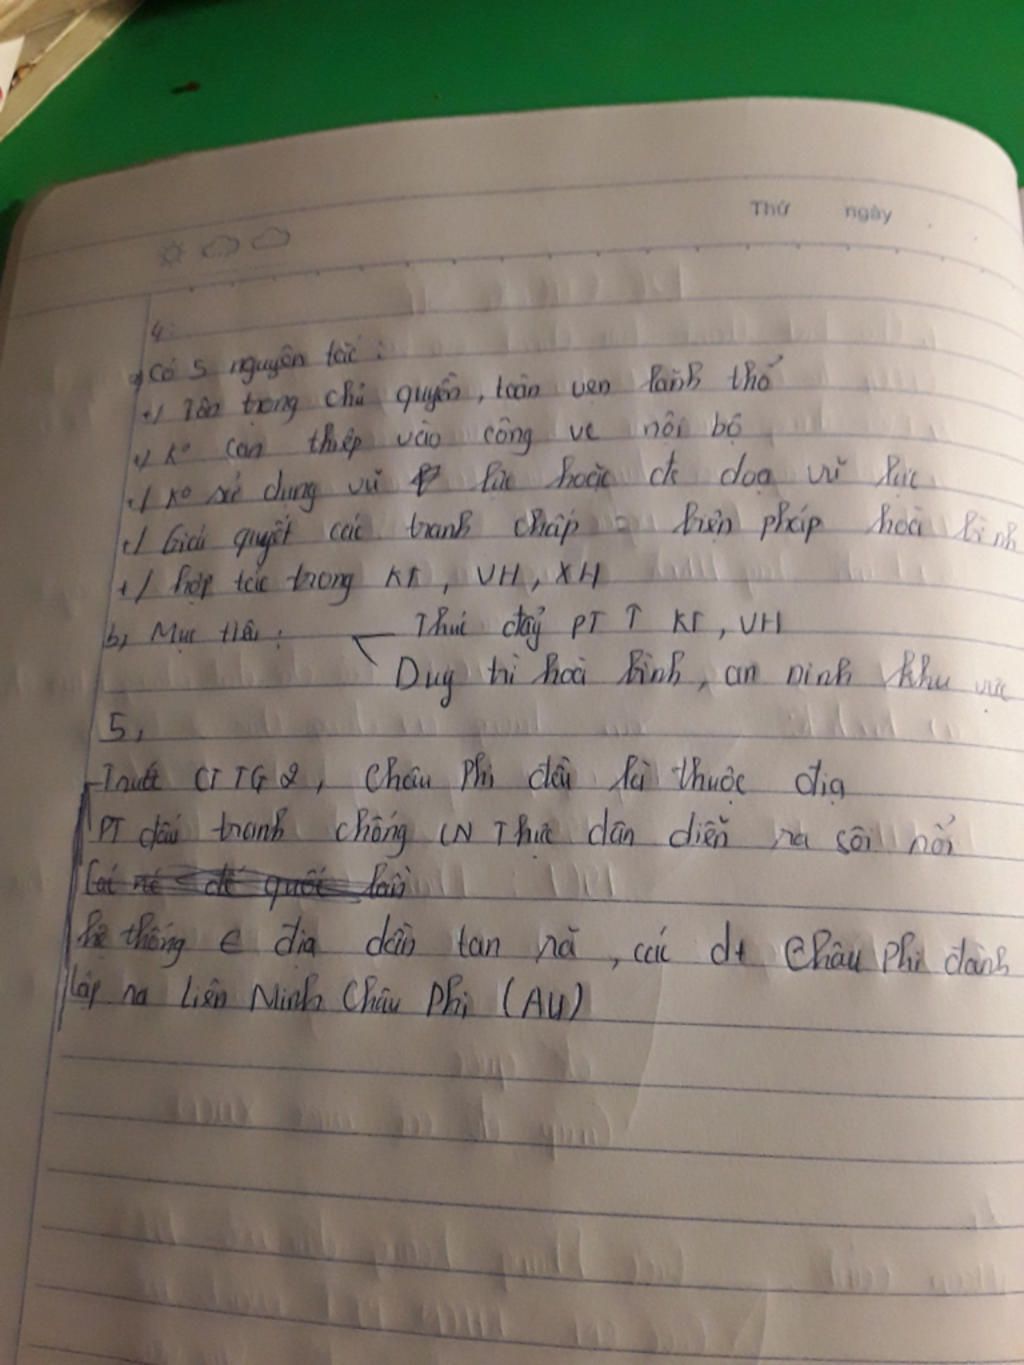 Thứ ngày
4:
a, Có 5 nguyên tắc :
+/ Tôn trọng chủ quyền, toàn vẹn lãnh thổ
+/ Ko can thiệp vào công vc nội bộ
+/ Ko sử dụng vũ lực hoặc đe dọa vũ lực
+/ Giải quyết các tranh chấp = biện pháp hoà bình
+/ hợp tác trong KT, VH, XH
b, Mục tiêu : Thúc đẩy PT ↑ KT, VH
Duy trì hoà bình, an ninh khu vực
5,
- Trước CTTG2, Châu Phi đều là thuộc địa
PT đấu tranh chống CN Thực dân diễn ra sôi nổi
hệ thống € địa dần tan rã, các dt Châu Phi đành
lập ra Liên Minh Châu Phi (AU)